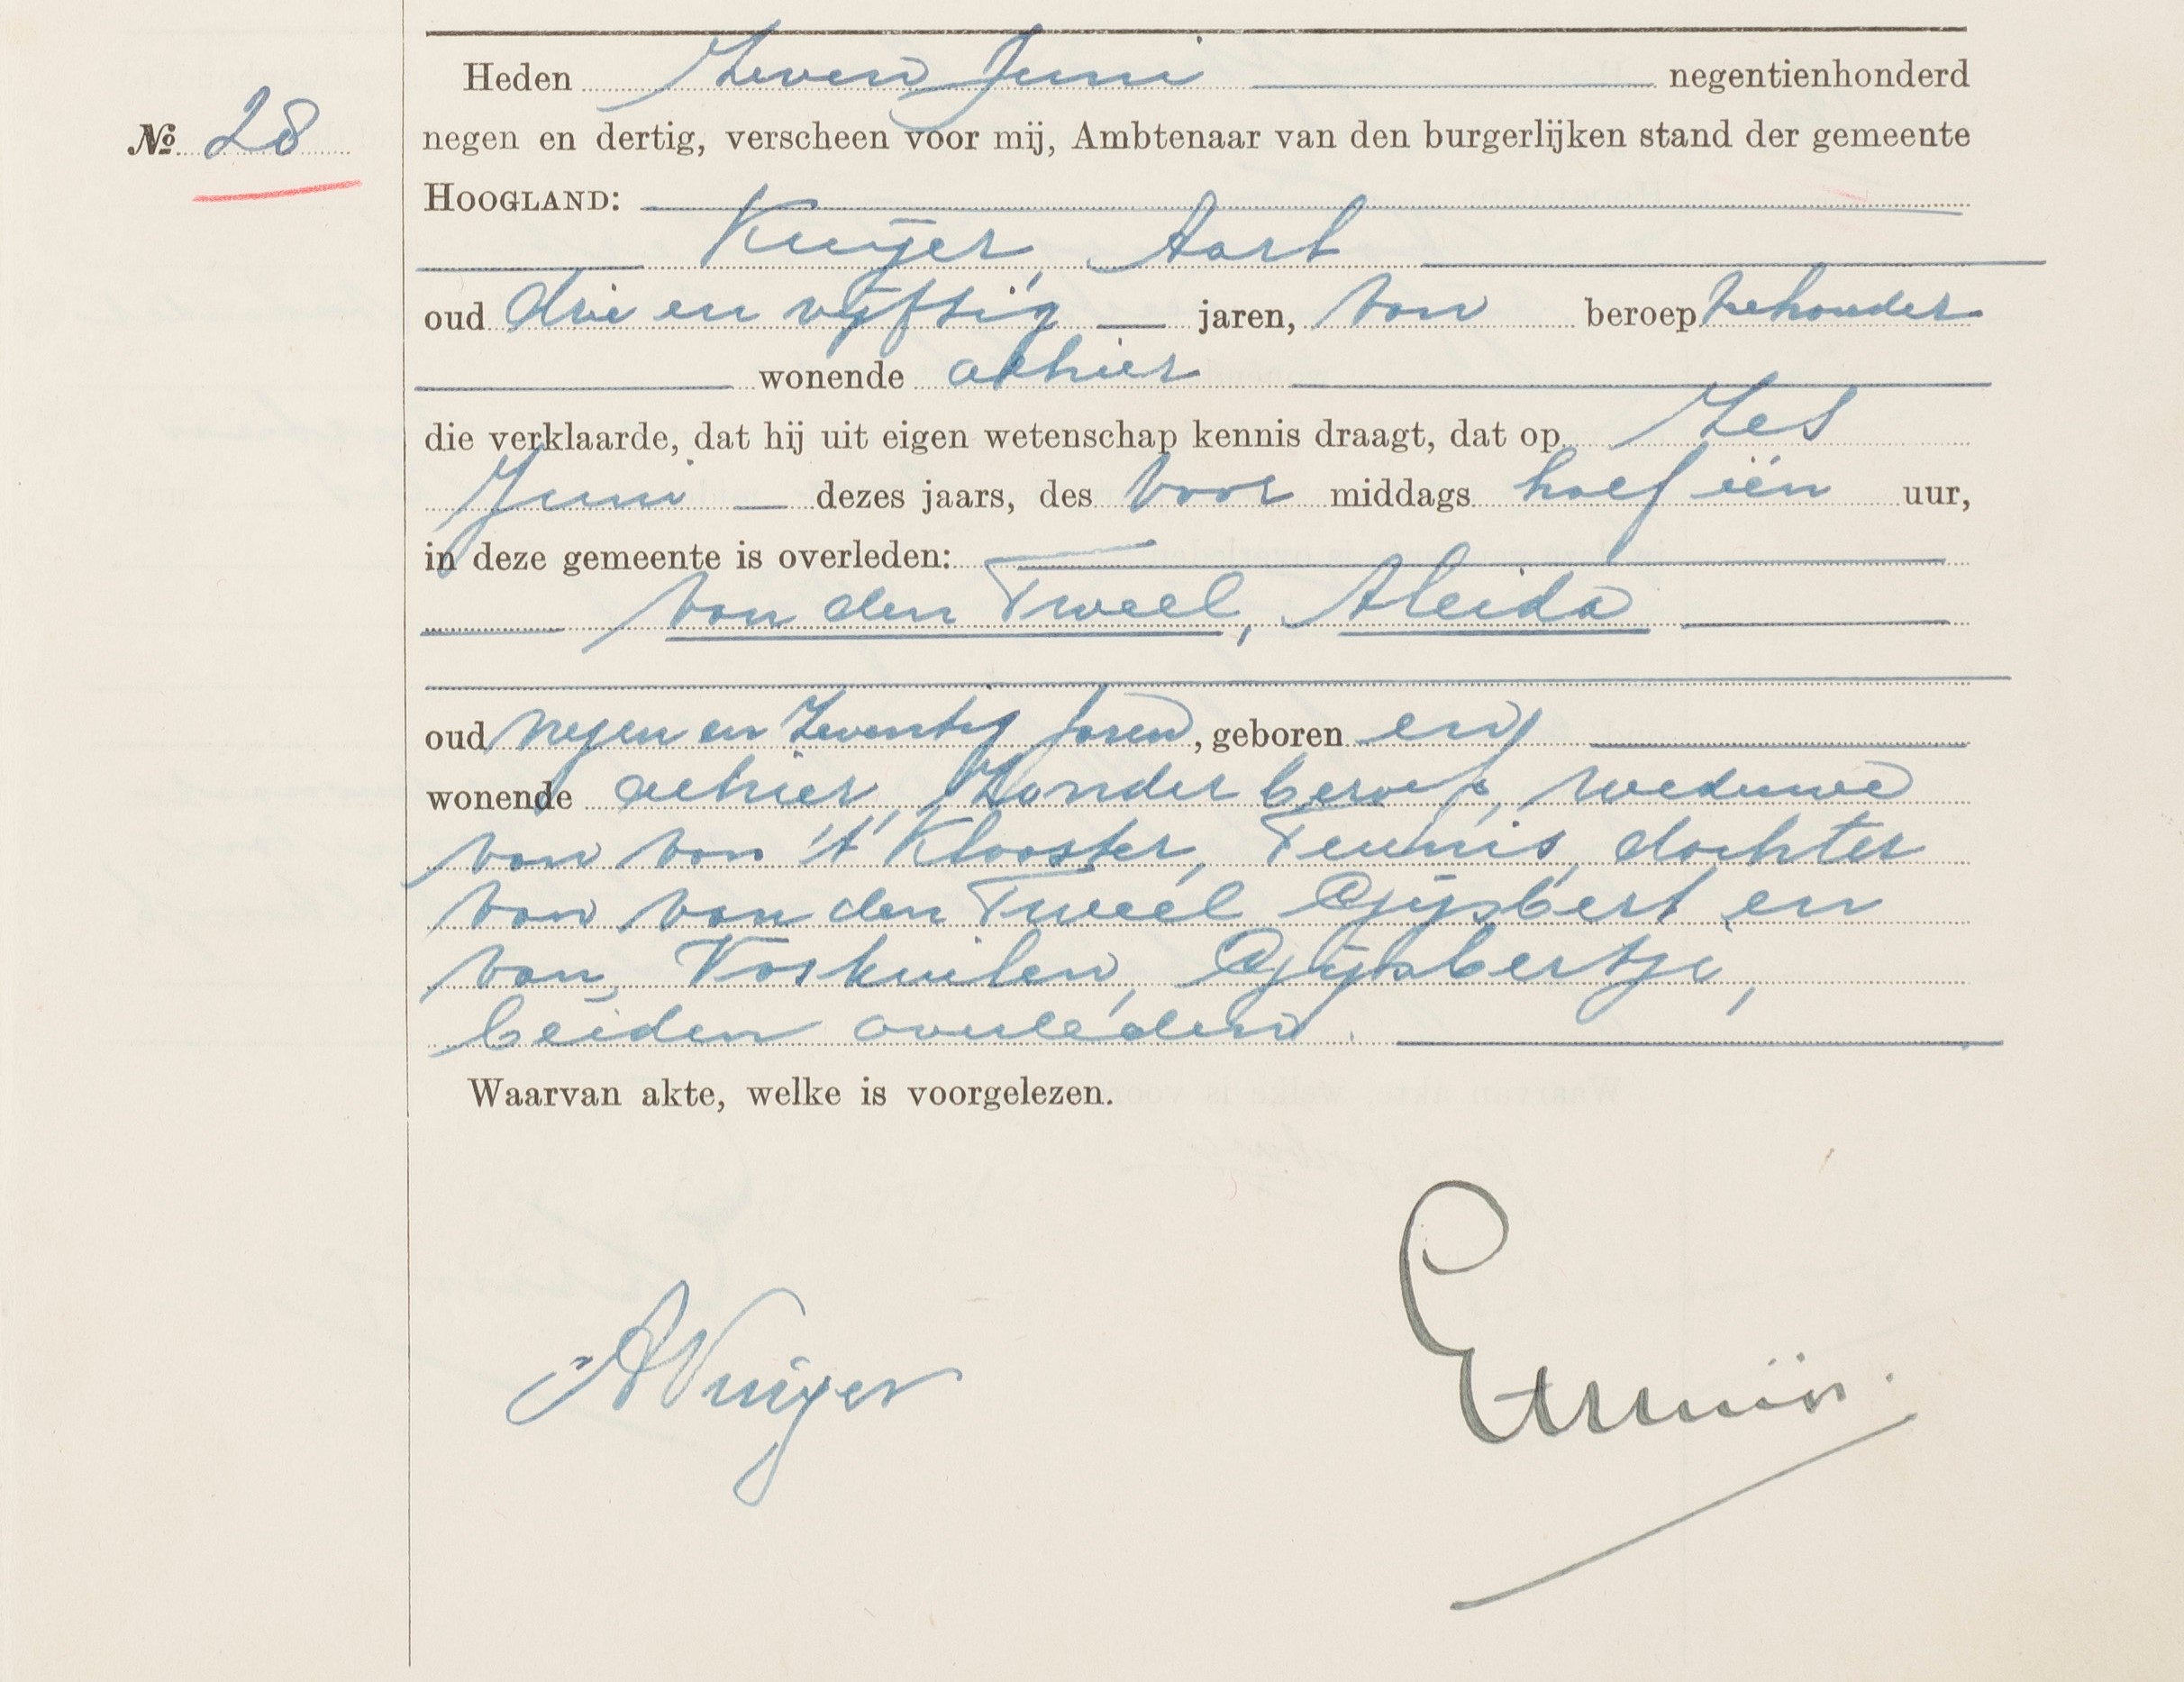 Heden Zeven Juni negentienhonderd
No 28
negen en dertig, verscheen voor mij, Ambtenaar van den burgerlijken stand der gemeente
HOOGLAND:
Kuijer, Aart
oud drie en vijftig jaren, van beroep
wonende alhier
die verklaarde, dat hij uit eigen wetenschap kennis draagt, dat op Zes
Juni dezes jaars, des voor middags half één uur,
in deze gemeente is overleden:
van den Tweel, Aleida
oud negen en zeventig jaren, geboren en
wonende alhier, zonder beroep, weduwe
van van 't Klooster, Teunis, dochter
van van den Tweel Gijsbert en
van, Voskuilen, Gijsbertje,
beiden overleden.
Waarvan akte, welke is voorgelezen.
A Kuijer